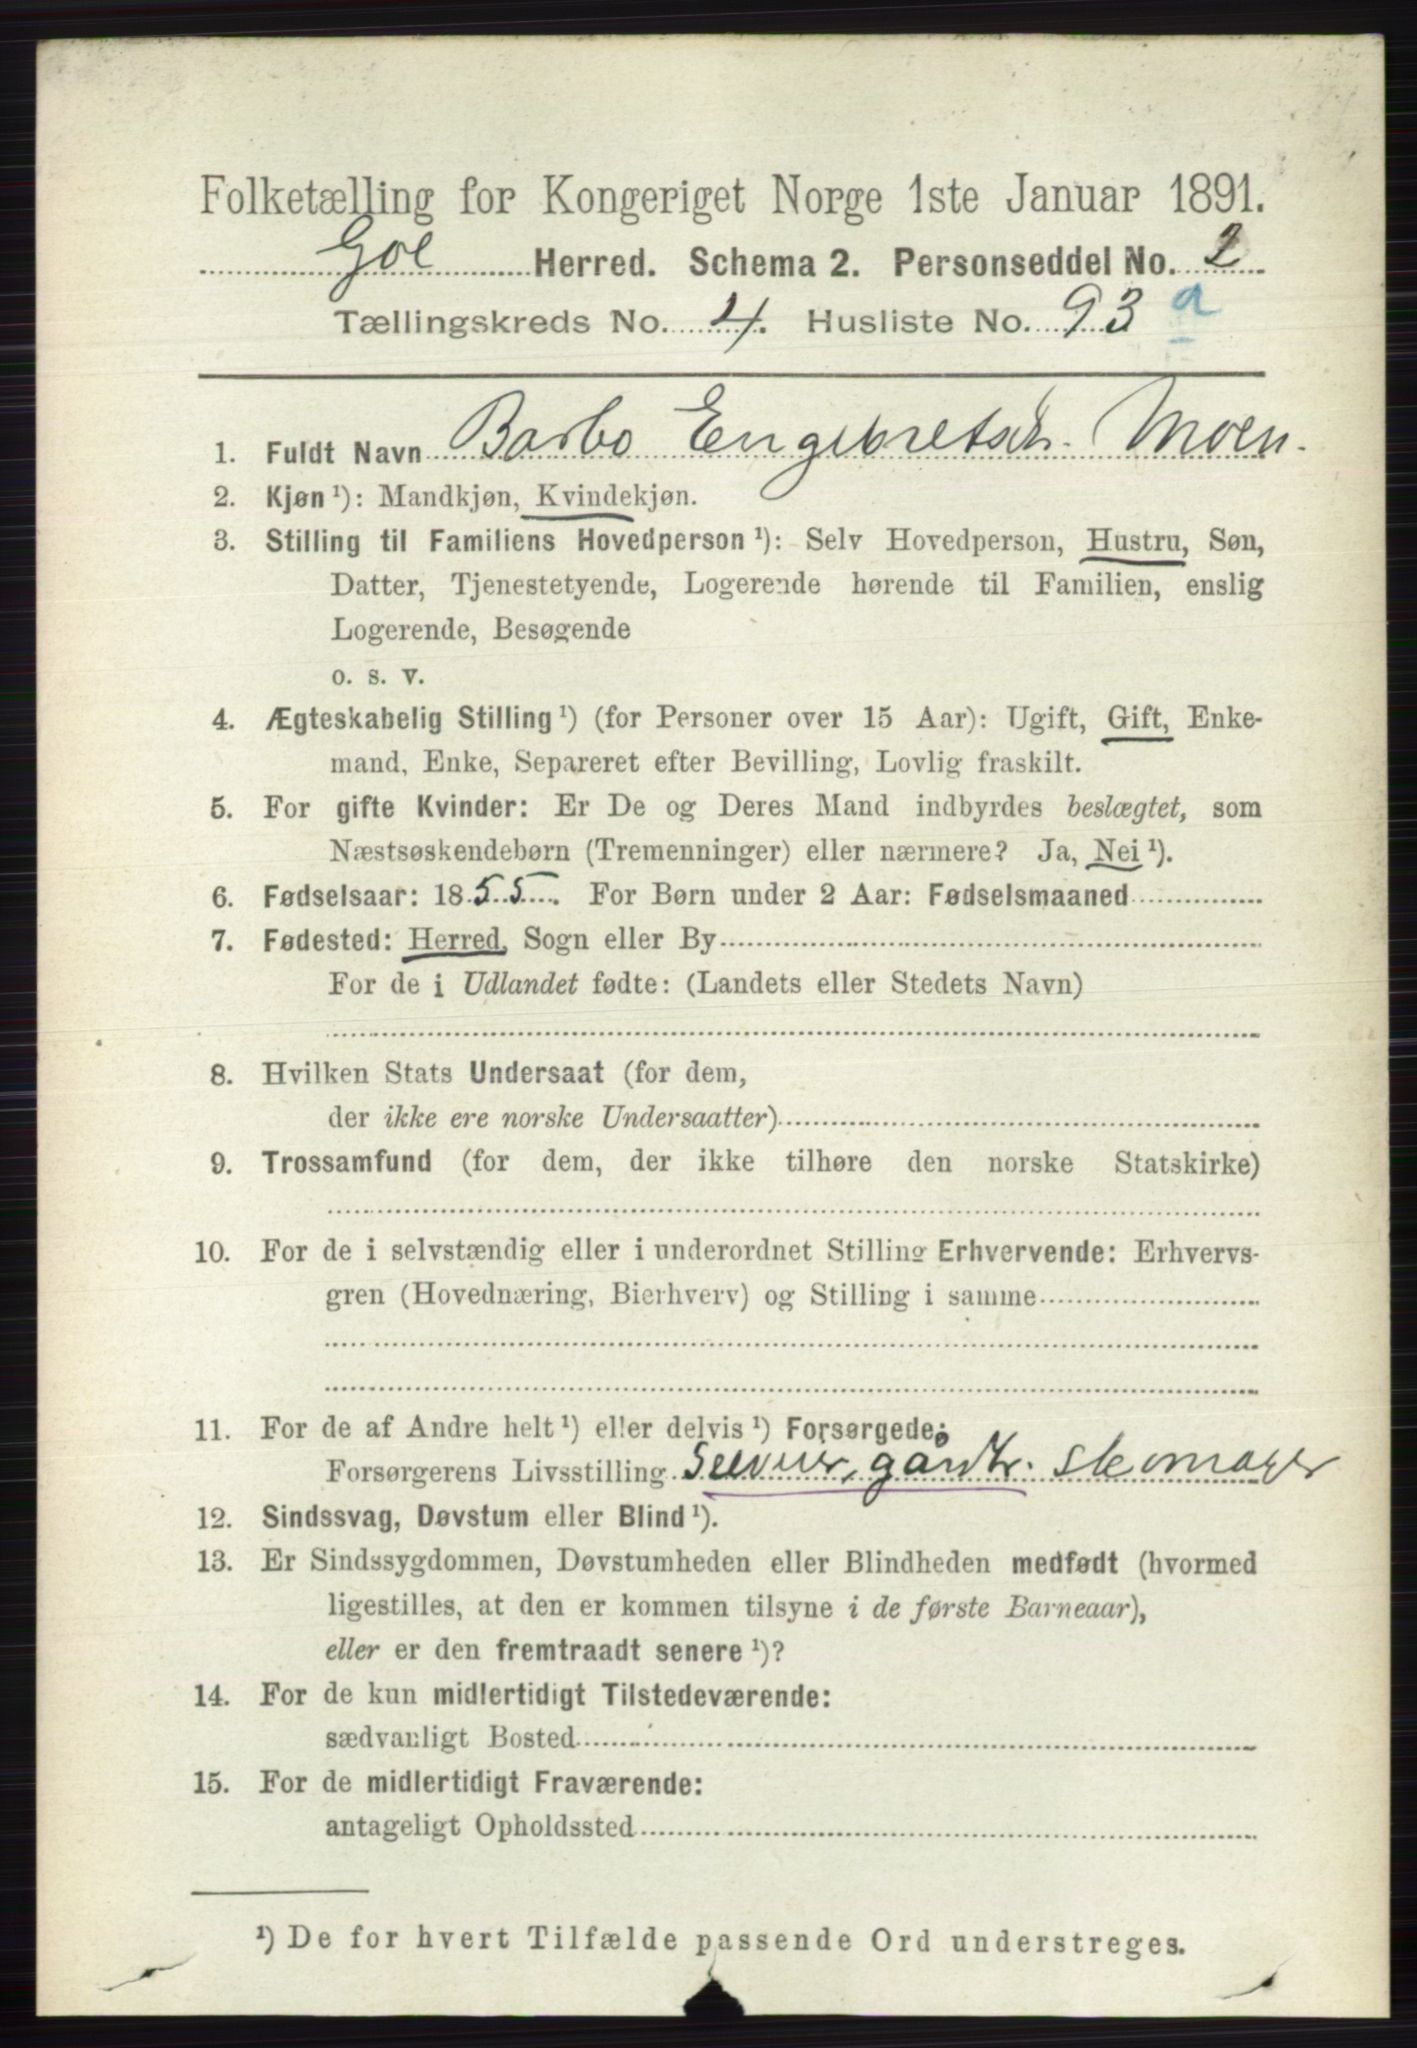 Folketælling for Kongeriget Norge 1ste Januar 1891.
Gol Herred. Schema 2. Personseddel No. 2
Tællingskreds No. 4. Husliste No. 93 a
1. Fuldt Navn Barbo Engebretsdr. Moen.
2. Kjøn ¹): Mandkjøn, Kvindekjøn.
3. Stilling til Familiens Hovedperson ¹): Selv Hovedperson, Hustru, Søn,
Datter, Tjenestetyende, Logerende hørende til Familien, enslig
Logerende, Besøgende
o. s. v.
4. Ægteskabelig Stilling ¹) (for Personer over 15 Aar): Ugift, Gift, Enke-
mand, Enke, Separeret efter Bevilling, Lovlig fraskilt.
5. For gifte Kvinder: Er De og Deres Mand indbyrdes beslægtet, som
Næstsøskendebørn (Tremenninger) eller nærmere? Ja, Nei ¹).
6. Fødselsaar: 1855. For Børn under 2 Aar: Fødselsmaaned
7. Fødested: Herred, Sogn eller By
For de i Udlandet fødte: (Landets eller Stedets Navn)
8. Hvilken Stats Undersaat (for dem,
der ikke ere norske Undersaatter)
9. Trossamfund (for dem, der ikke tilhøre den norske Statskirke)
10. For de i selvstændig eller i underordnet Stilling Erhvervende: Erhvervs-
gren (Hovednæring, Bierhverv) og Stilling i samme
11. For de af Andre helt ¹) eller delvis ¹) Forsørgede:
Forsørgerens Livsstilling Selveier, gårdbr. skomager
12. Sindssvag, Døvstum eller Blind ¹).
13. Er Sindssygdommen, Døvstumheden eller Blindheden medfødt (hvormed
ligestilles, at den er kommen tilsyne i de første Barneaar),
eller er den fremtraadt senere ¹)?
14. For de kun midlertidigt Tilstedeværende:
sædvanligt Bosted
15. For de midlertidigt Fraværende:
antageligt Opholdssted
¹) De for hvert Tilfælde passende Ord understreges.